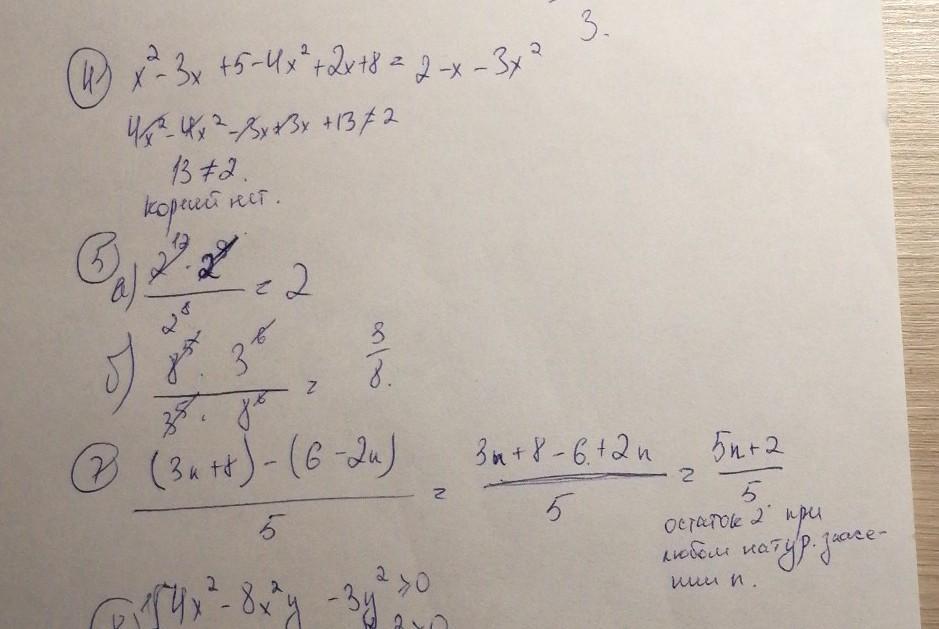 3.
4) x² - 3x + 5 - 4x² + 2x + 8 = 2 - x - 3x²
4x² - 4x² - 3x + 3x + 13 ≠ 2
13 ≠ 2.
корней нет.
5
а) (2¹² · 2⁹) / 2⁸ = 2
б) (8⁵ · 3⁶) / (3⁵ · 8⁶) = 3/8.
7 ((3n+8) - (6-2n)) / 5 = (3n+8-6+2n) / 5 = (5n+2) / 5
остаток 2 при
любом натур. значе-
нии n.
4x² - 8x²y - 3y² ≥ 0